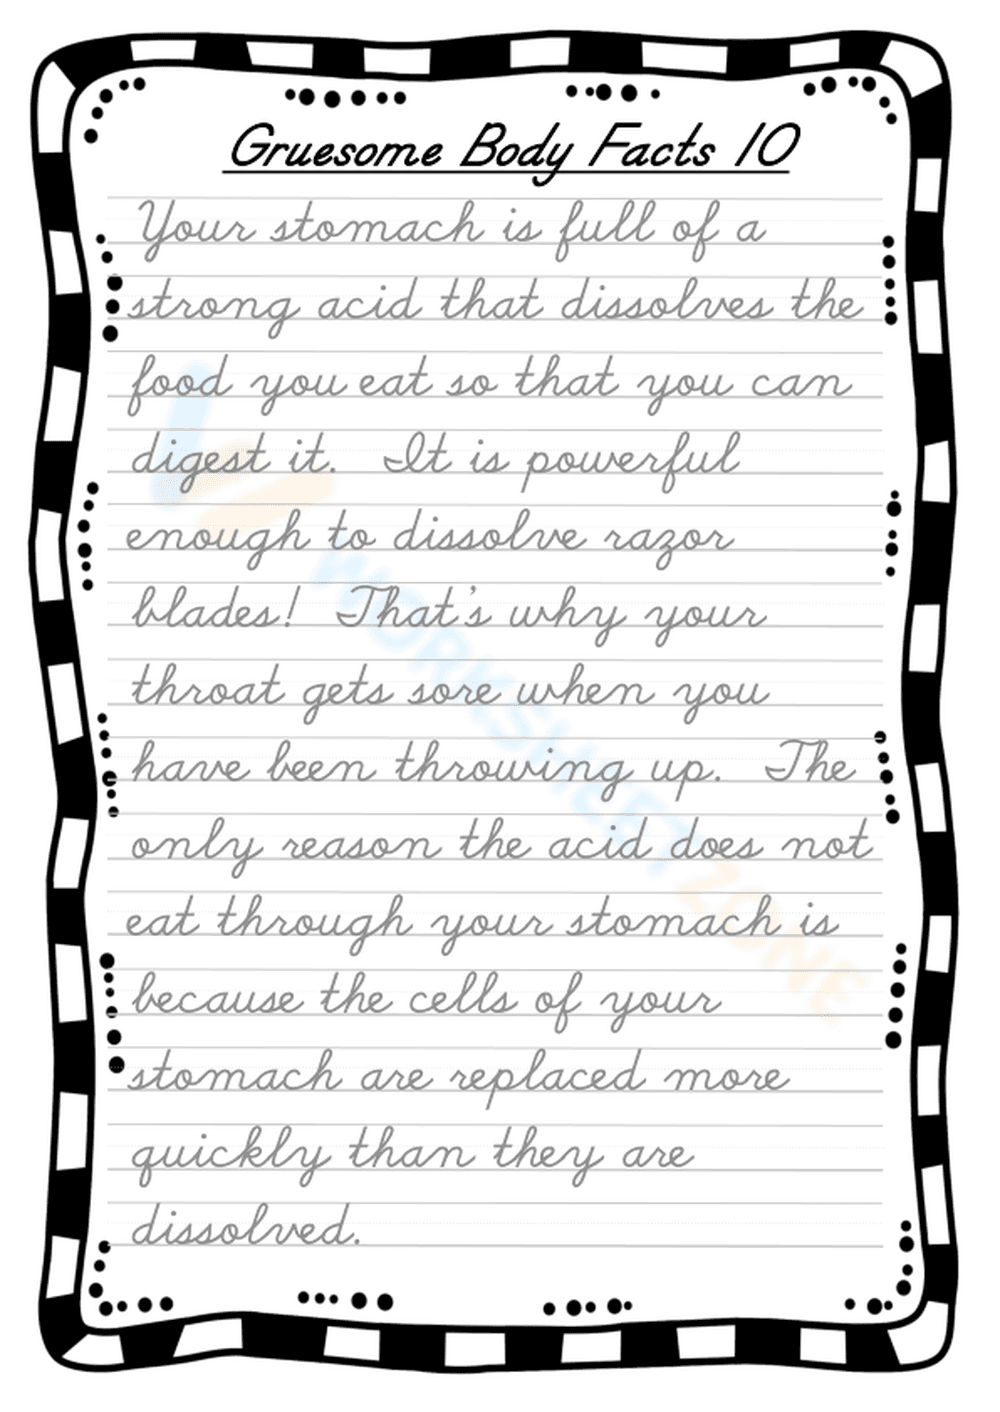 Gruesome Body Facts 10
Your stomach is full of a
strong acid that dissolves the
food you eat so that you can
digest it. It is powerful
enough to dissolve razor
blades! That's why your
throat gets sore when you
have been throwing up. The
only reason the acid does not
eat through your stomach is
because the cells of your
stomach are replaced more
quickly than they are
dissolved.
WORKSHEETZONE